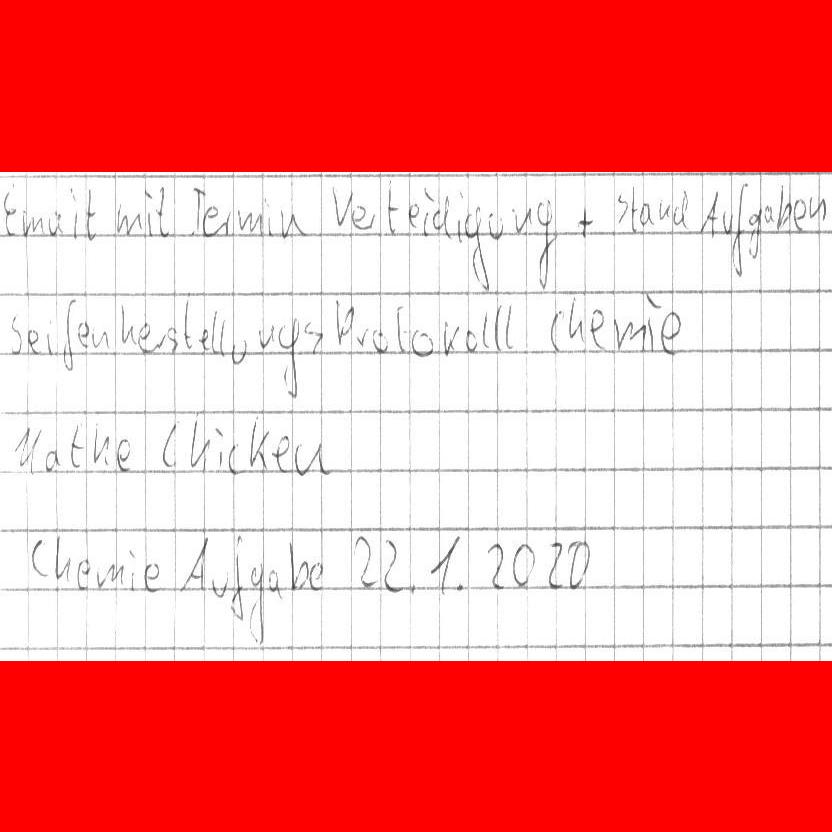 Email mit Termin Verteidigung + Stand Aufgaben
Seifenherstellungs Protokoll Chemie
Mathe Chicken
Chemie Aufgabe 22.1.2020